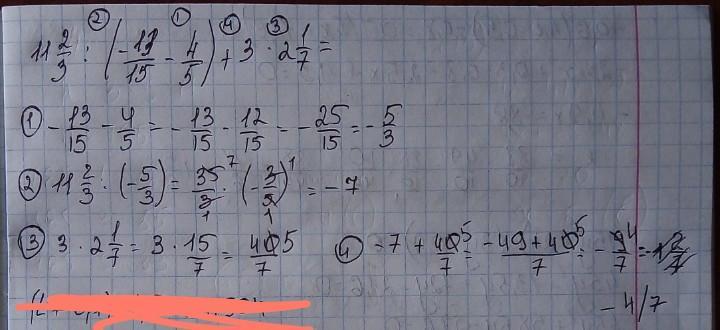 ② ① ④ ③
11 2/3 : (-13/15 - 4/5) + 3 · 2 1/7 =
① -13/15 - 4/5 = -13/15 - 12/15 = -25/15 = -5/3
② 11 2/3 : (-5/3) = 35/3 · (-3/5) = -7
③ 3 · 2 1/7 = 3 · 15/7 = 45/7 ④ -7 + 45/7 = -49+45/7 = -4/7
-4/7